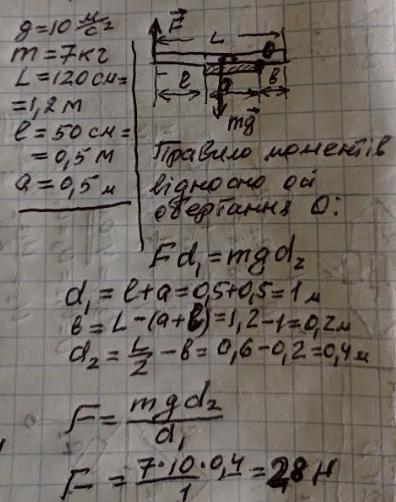 g=10 м/с²
m=7кг
L=120см=
=1,2м
l=50см=
=0,5м
a=0,5м
F⃗
L
l
a
в
mg⃗
Правило моментів
відносно осі
обертання О:
Fd₁=mgd₂
d₁=l+a=0,5+0,5=1м
в=L-(a+l)=1,2-1=0,2м
d₂=L/2-в=0,6-0,2=0,4м
F=mgd₂/d₁
F=7·10·0,4/1=28Н